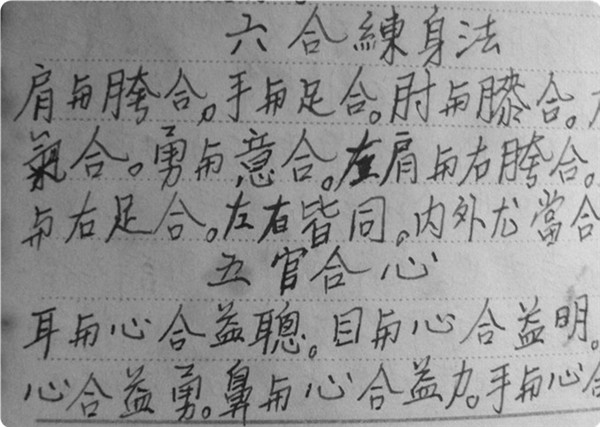 六合練身法
肩与胯合。手与足合。肘与膝合。
氣合。勇与意合。左肩与右胯合。
与右足合。左右皆同。内外尤當合
五官合心
耳与心合益聰。目与心合益明。
心合益勇。鼻与心合益力。手与心合